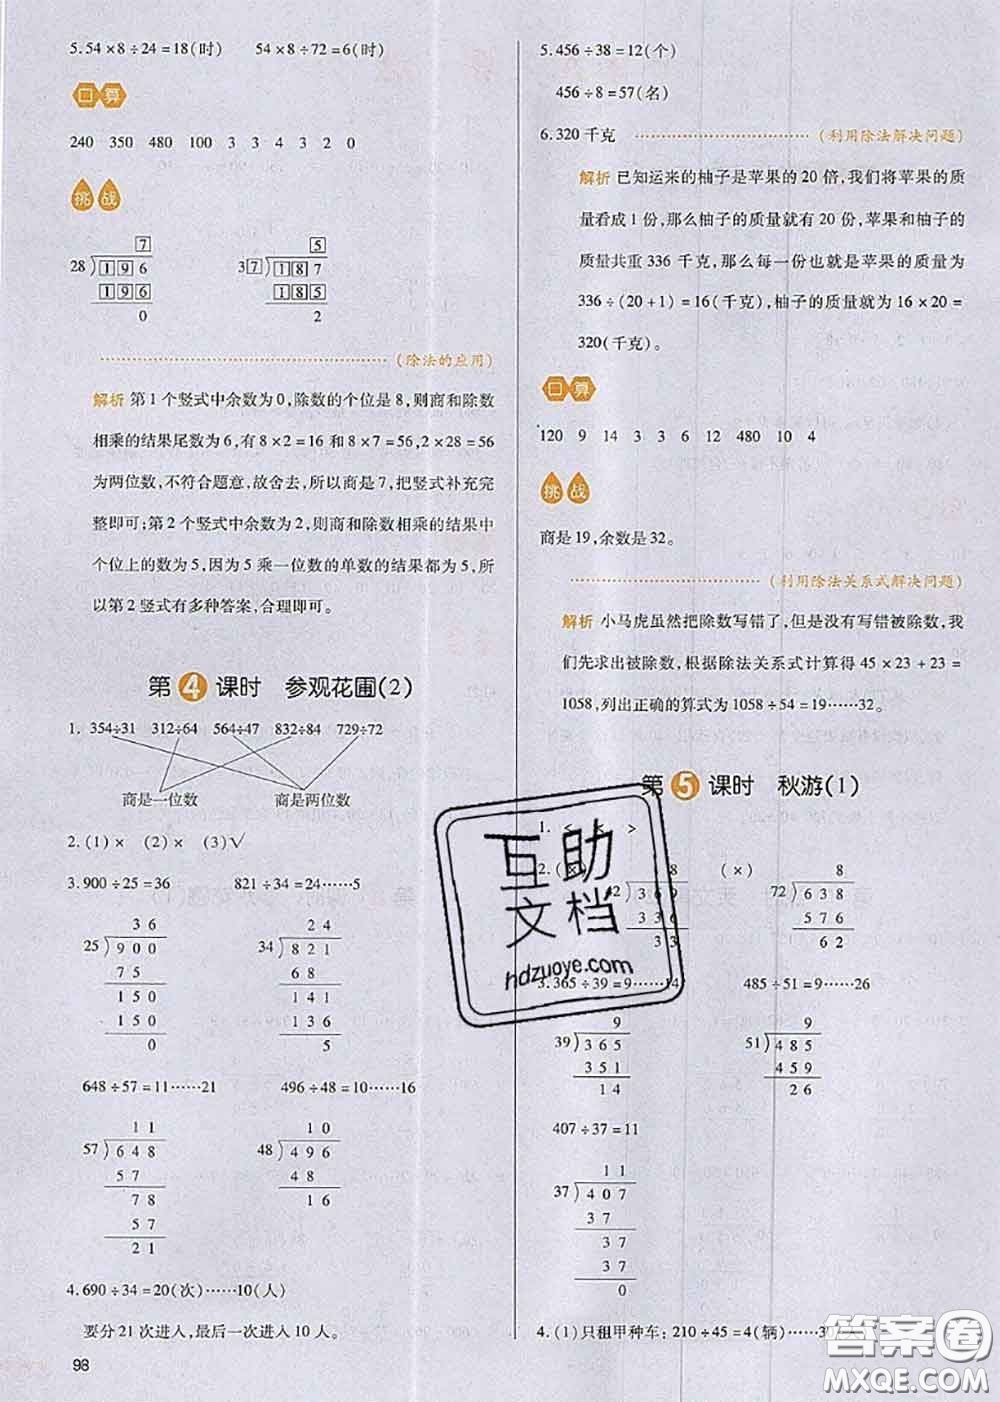 5.54×8÷24=18(时)　54×8÷72=6(时)
口算
240 350 480 100 3 3 4 3 2 0
挑战
7
28)196
196
0
5
37)187
185
2
(除法的应用)
解析 第1个竖式中余数为0,除数的个位是8,则商和除数
相乘的结果尾数为6,有8×2=16和8×7=56,2×28=56
为两位数,不符合题意,故舍去,所以商是7,把竖式补充完
整即可;第2个竖式中余数为2,则商和除数相乘的结果中
个位上的数为5,因为5乘一位数的单数的结果都为5,所
以第2竖式有多种答案,合理即可。
第4课时　参观花圃(2)
1. 354÷31 312÷64 564÷47 832÷84 729÷72
商是一位数　商是两位数
2.(1)× (2)× (3)√
3.900÷25=36　821÷34=24……5
36
25)900
75
150
150
0
24
34)821
68
141
136
5
648÷57=11……21　496÷48=10……16
11
57)648
57
78
57
21
10
48)496
48
16
4.690÷34=20(次)……10(人)
要分21次进入,最后一次进入10人。
98
5.456÷38=12(个)
456÷8=57(名)
6.320千克 (利用除法解决问题)
解析 已知运来的柚子是苹果的20倍,我们将苹果的质
量看成1份,那么柚子的质量就有20份,苹果和柚子的
质量共重336千克,那么每一份也就是苹果的质量为
336÷(20+1)=16(千克),柚子的质量就为16×20=
320(千克)。
口算
120 9 14 3 3 6 12 480 10 4
挑战
商是19,余数是32。
(利用除法关系式解决问题)
解析 小马虎虽然把除数写错了,但是没有写错被除数,我
们先求出被除数,根据除法关系式计算得45×23+23=
1058,列出正确的算式为1058÷54=19……32。
第5课时　秋游(1)
1. < < >
2.(×)　(×)
8
42)369
336
33
8
72)638
576
62
3.365÷39=9……14　485÷51=9……26
9
39)365
351
14
9
51)485
459
26
407÷37=11
11
37)407
37
37
37
0
4.(1)只租甲种车:210÷45=4(辆)……30(人)
互助
文档
hdzuoye.com
答案圈
MXQE.COM